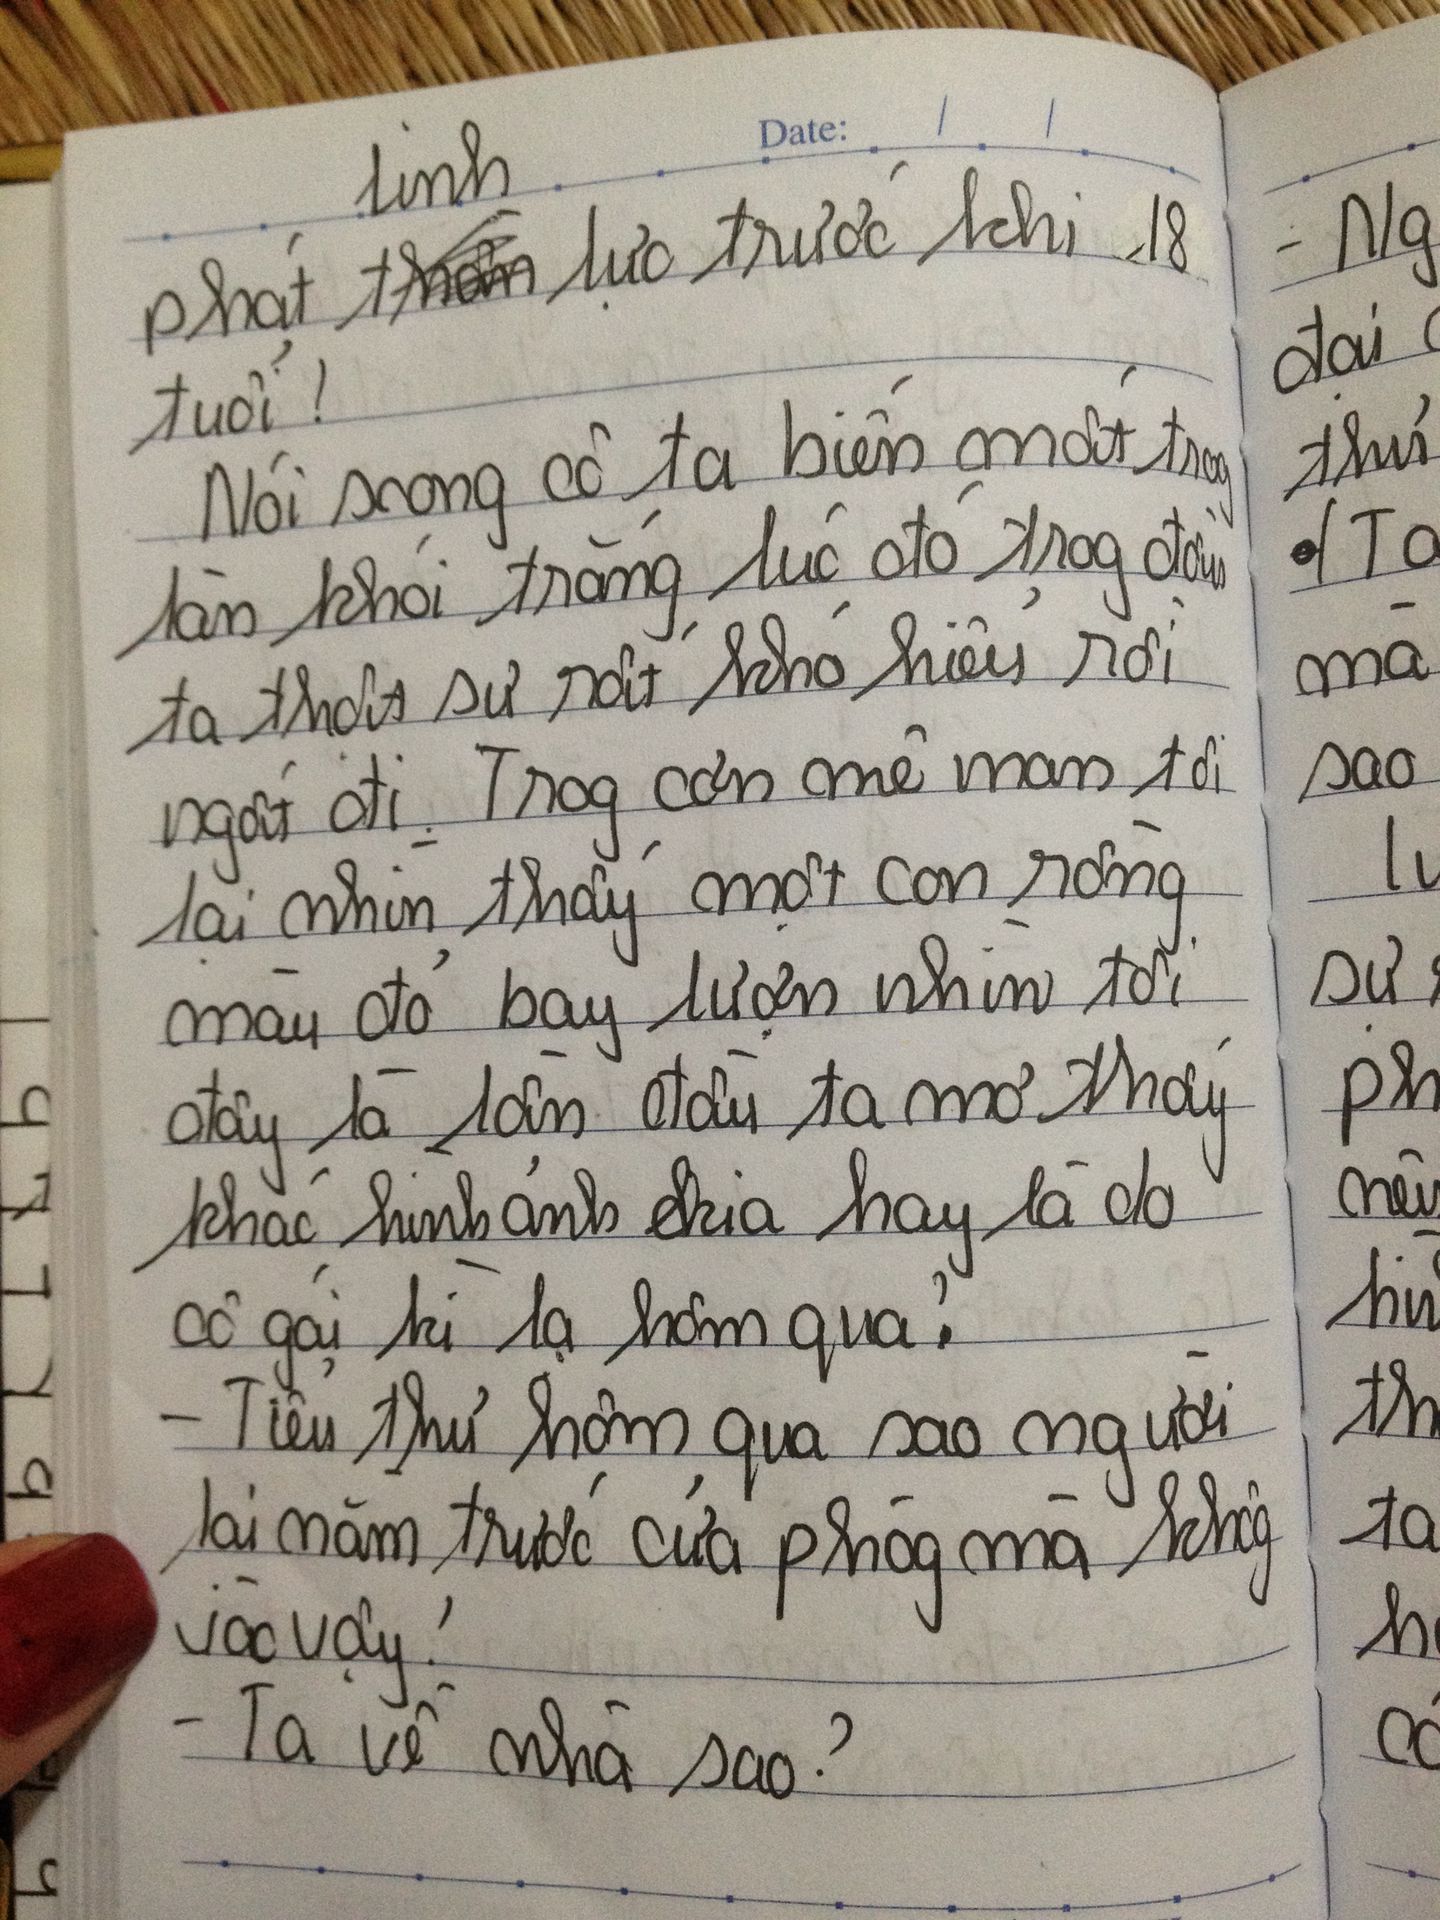 Date: / /
linh
phát thần lực trước khi 18
tuổi!
Nói xong cô ta biến mất trog
làn khói trắng lúc đó trog đầu
ta thật sự rất khó hiểu rồi
ngất đi. Trog cơn mê man tôi
lại nhìn thấy một con rồng
màu đỏ bay lượn nhìn tôi
đây là lần đầu ta mơ thấy
khác hình ảnh kia hay là do
cô gái kì lạ hôm qua?
- Tiểu thư hôm qua sao người
lại nằm trước cửa phòg mà khôg
vào vậy!
- Ta về nhà sao?
- Ng
đại
thú
Ta
mà
sao
sự
ph
nên
th
ta